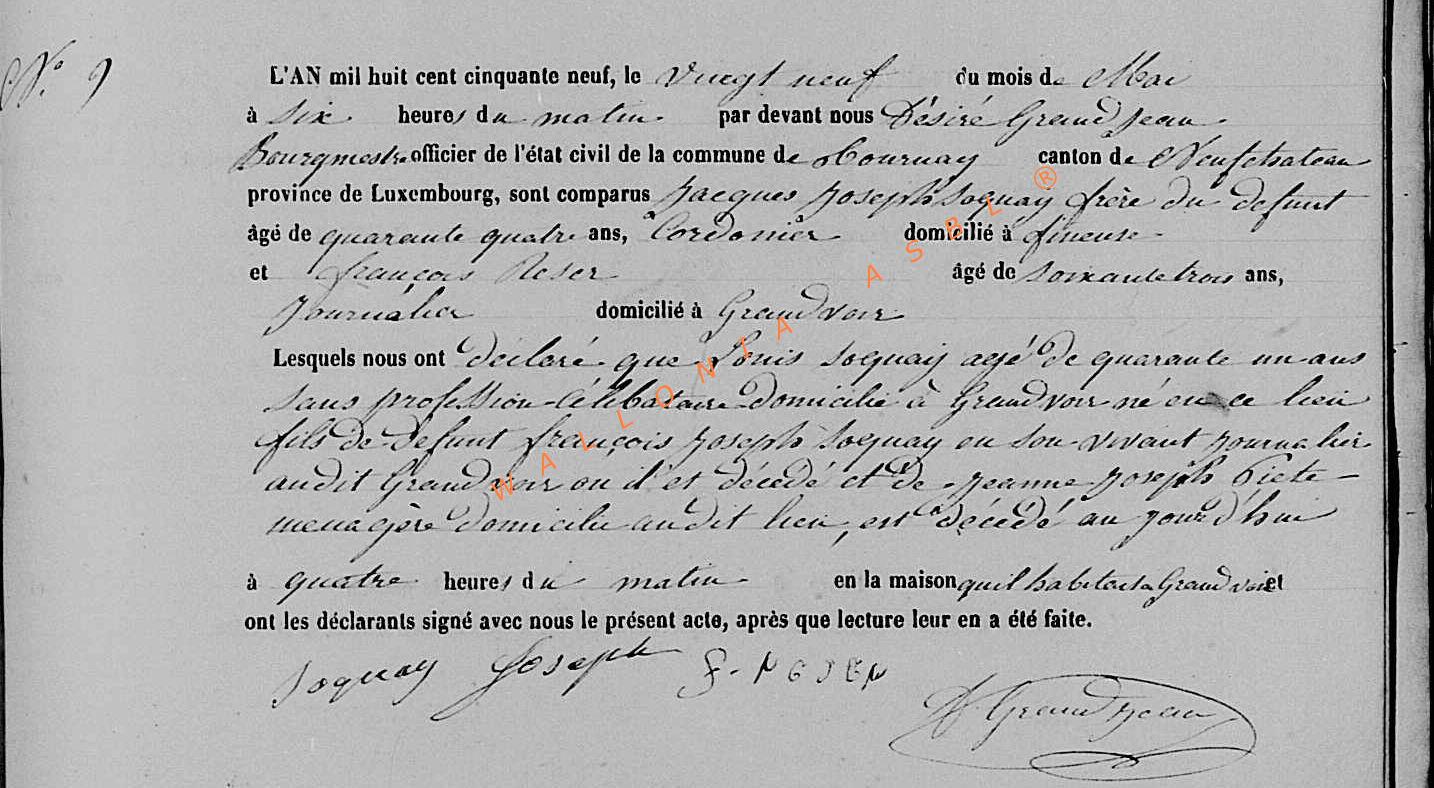 N.° 9
L'AN mil huit cent cinquante neuf, le vingt neuf du mois de Mai
à six heures du matin par devant nous Désiré Grandjean
Bourgmestre officier de l'état civil de la commune de Tournay canton de Neufchateau
province de Luxembourg, sont comparus Jacques Joseph Soquay frère du defunt
âgé de quarante quatre ans, Cordonier domicilié à
et françois âgé de soixante trois ans,
Journalier domicilié à Grandvoir
Lesquels nous ont déclaré que Louis Soquay agé de quarante un ans
sans profession Célibataire domicilié à Grandvoir né en ce lieu
fils de defunt françois Joseph Soquay en son vivant journalier
audit Grandvoir ou il et décédé et de Jeanne Joseph
menagère domicilie audit lieu, est décédé au jourd'hui
à quatre heures du matin en la maison quil habitait a Grandvoir et
ont les déclarants signé avec nous le présent acte, après que lecture leur en a été faite.
Soquay Joseph F.
D Grandjean
WALLONIA ASBL ®